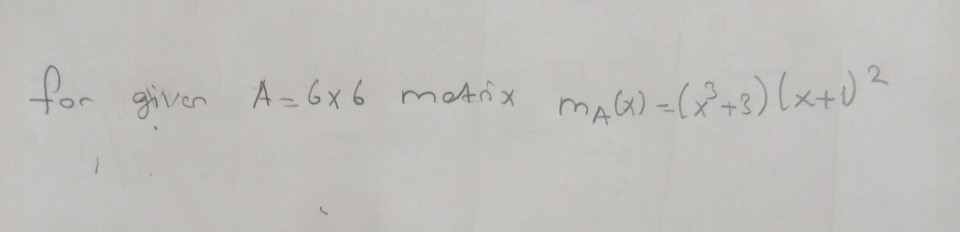 for given A = 6x6 matrix m_A(x) = (x³+3)(x+1)²